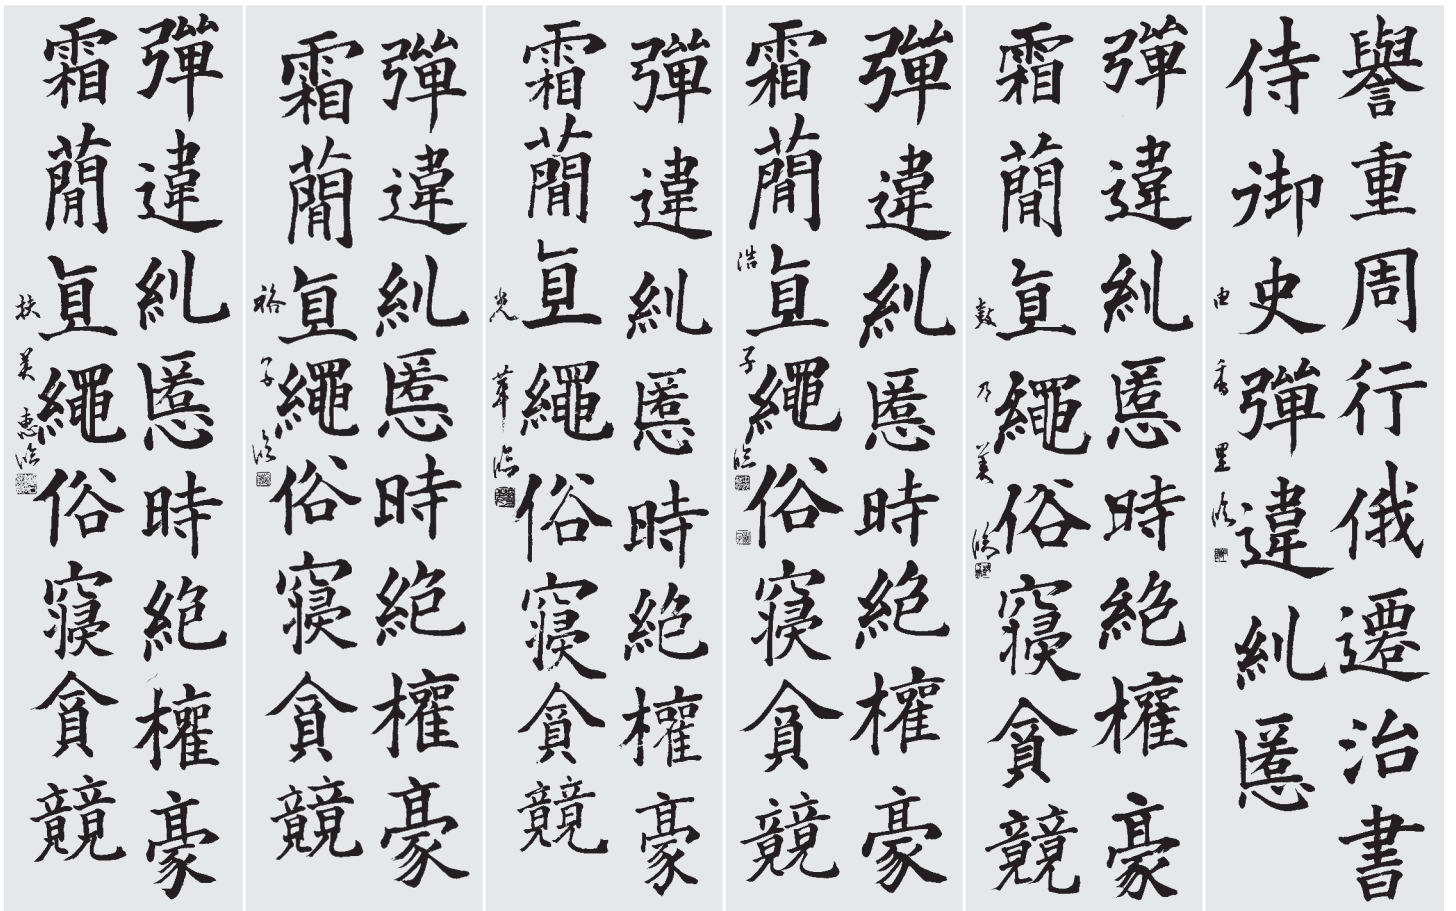 譽重周行俄遷治書
侍御史彈違糺慝
由香里臨
彈違糺慝時絶權豪
霜蕑直繩俗寢貪競
乃美臨
彈違糺慝時絶權豪
霜蕑直繩俗寢貪競
浩子臨
彈違糺慝時絶權豪
霜蕑直繩俗寢貪競
光華臨
彈違糺慝時絶權豪
霜蕑直繩俗寢貪競
裕子臨
彈違糺慝時絶權豪
霜蕑直繩俗寢貪競
扶美恵臨